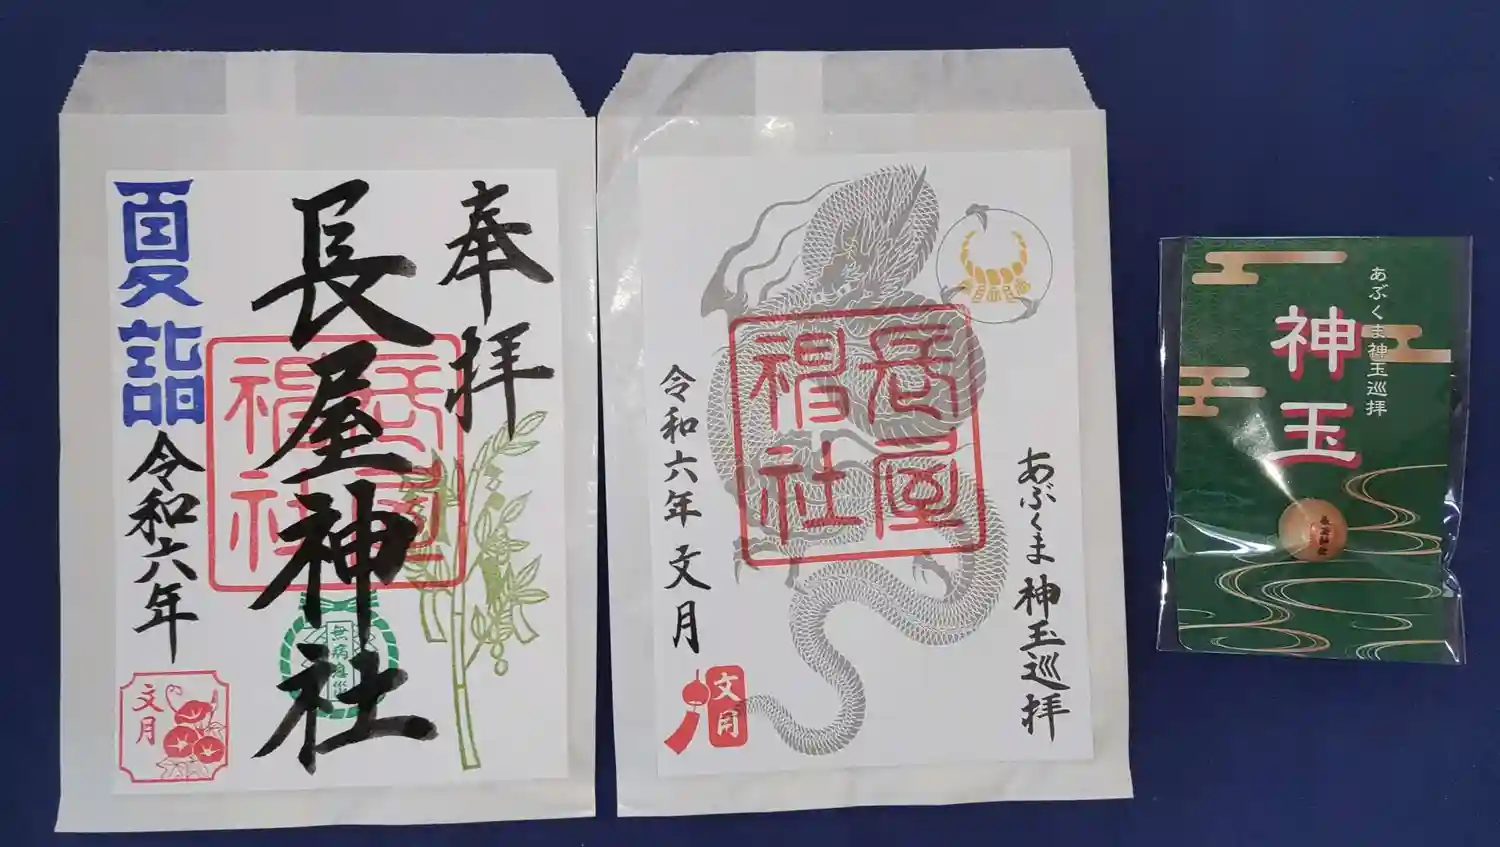 奉拝
長屋神社
長屋神社
無病息災
夏詣
令和六年
文月
あぶくま神玉巡拝
長屋神社
令和六年文月
文月
あぶくま神玉巡拝
神玉
長屋神社